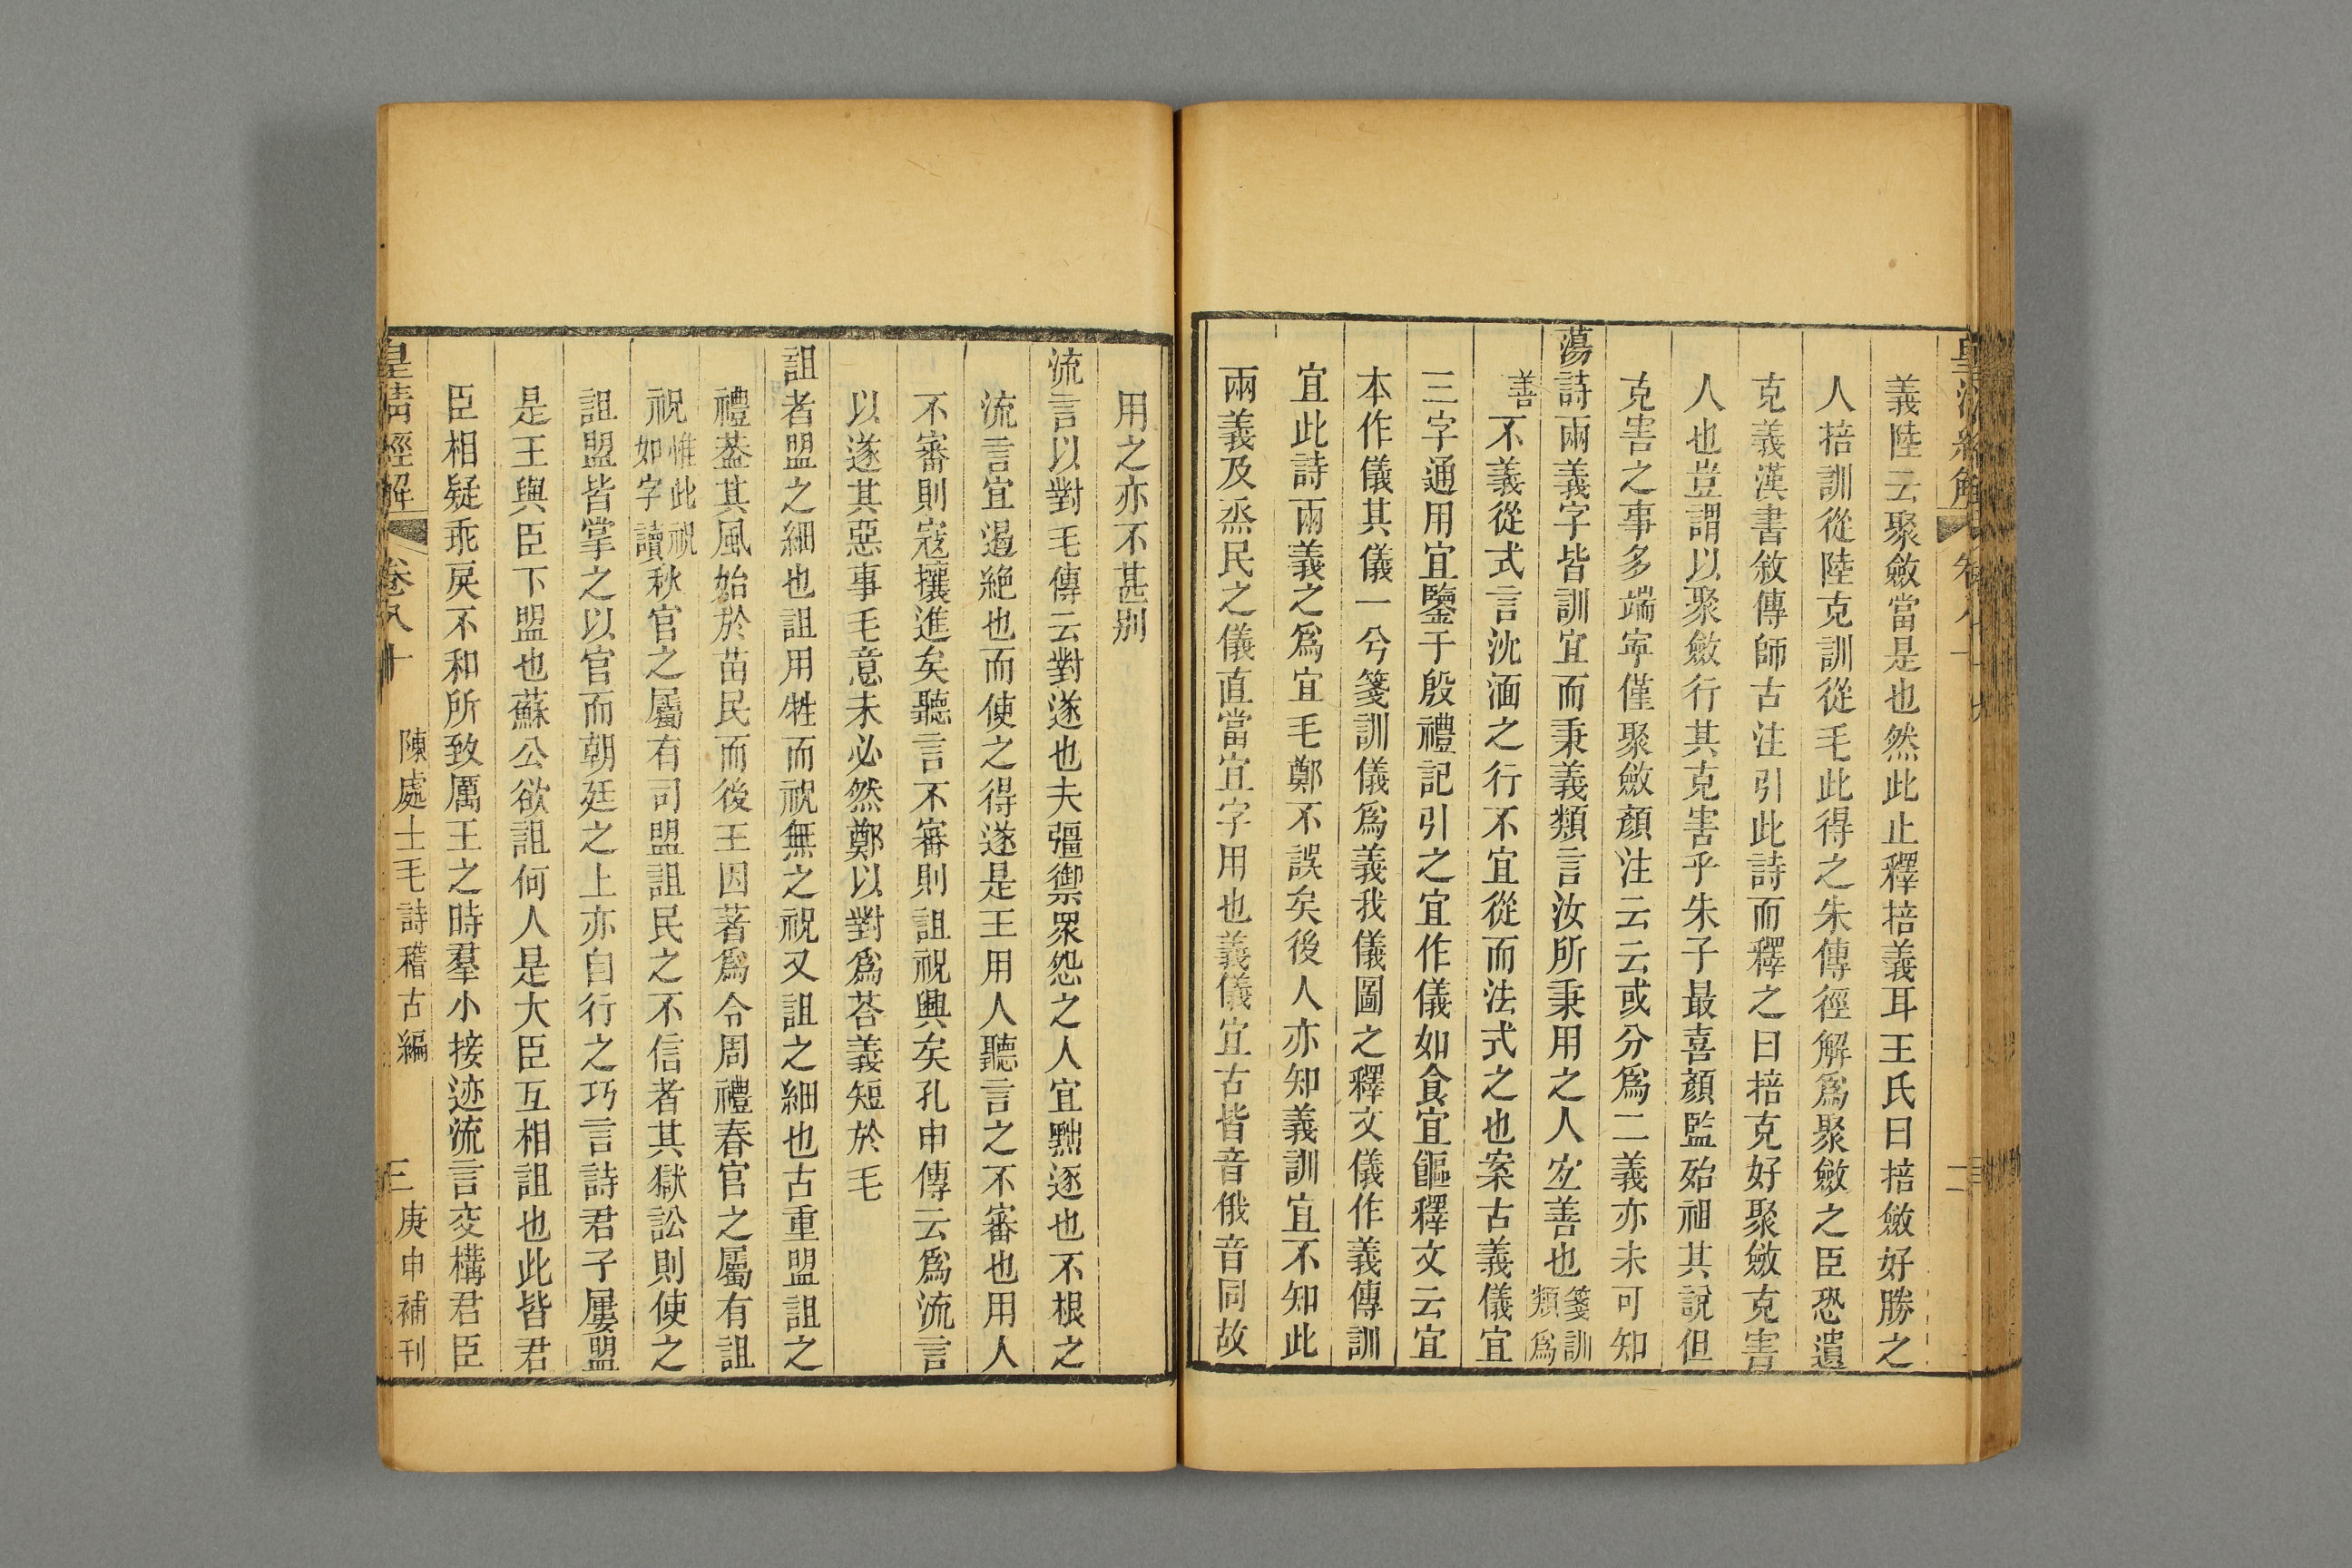 義陸云聚斂當是也然此止釋掊義耳王氏曰掊斂好勝之
人掊訓從陸克訓從毛此得之朱傳徑解爲聚斂之臣恐遺
克義漢書敘傳師古注引此詩而釋之曰掊克好聚斂克害
人也豈謂以聚斂行其克害乎朱子最喜顏監殆祖其說但
克害之事多端寕僅聚斂顏注云云或分爲二義亦未可知
蕩詩兩義字皆訓宜而秉義類言汝所秉用之人宐善也箋訓類爲
善不義從式言沈湎之行不宜從而法式之也案古義儀宜
三字通用宜鑒于殷禮記引之宜作儀如食宜饇釋文云宜
本作儀其儀一兮箋訓儀爲義我儀圖之釋文儀作義傳訓
宜此詩兩義之爲宜毛鄭不誤矣後人亦知義訓宜不知此
兩義及烝民之儀直當宜字用也義儀宜古皆音俄音同故
用之亦不甚别
流言以對毛傳云對遂也夫彊禦眾怨之人宜黜逐也不根之
流言宜遏絶也而使之得遂是王用人聽言之不審也用人
不審則寇攘進矣聽言不審則詛祝興矣孔申傳云爲流言
以遂其惡事毛意未必然鄭以對爲荅義短於毛
詛者盟之細也詛用牲而祝無之祝又詛之細也古重盟詛之
禮葢其風始於苗民而後王因著爲令周禮春官之屬有詛
祝惟此祝如字讀秋官之屬有司盟詛民之不信者其獄訟則使之
詛盟皆掌之以官而朝廷之上亦自行之巧言詩君子屢盟
是王與臣下盟也蘇公欲詛何人是大臣互相詛也此皆君
臣相疑乖戾不和所致厲王之時羣小接迹流言交構君臣
皇清經解 卷八十 陳處士毛詩稽古編 三 庚申補刊